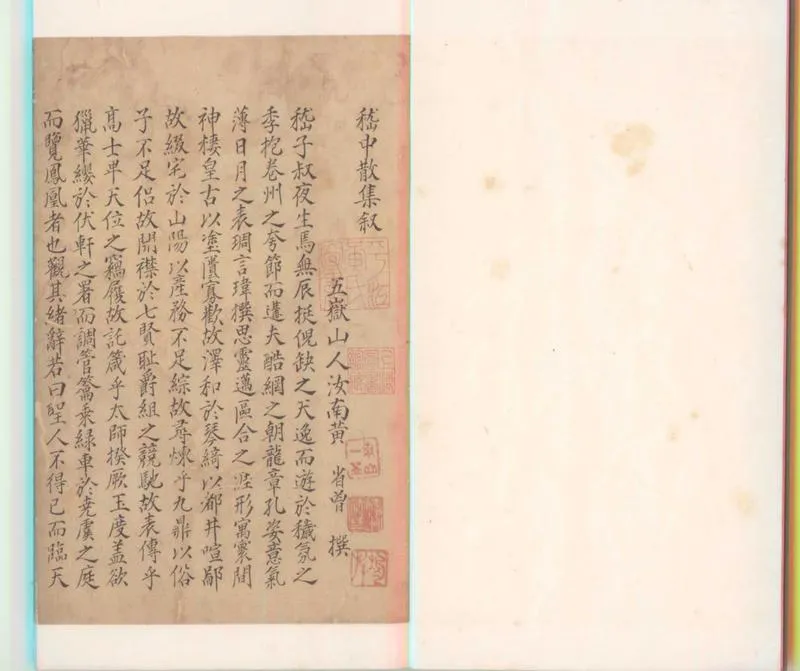 嵇中散集叙
五嶽山人汝南黄 省曾 撰
嵇子叔夜生焉無辰挺俔缺之天逸而遊於穢氛之
季抱卷州之夸節而遭夫酷網之朝龍章孔姿意氣
薄日月之表琱言瑋撰思靈邁區合之涯形寓寰間
神棲皇古以塗隤寡歡故澤和於琴綺以都井喧鄙
故綴宅於山陽以產務不足綜故尋煉乎九鼎以俗
子不足侣故開襟於七賢耻爵組之競馳故表傳乎
髙士畀天位之竊履故託箴乎太師揆厥玉度蓋欲
獵華纓於伏軒之署而調管籥乗緑車於堯虞之庭
而覽鳳凰者也觀其緒辭若曰聖人不得已而臨天